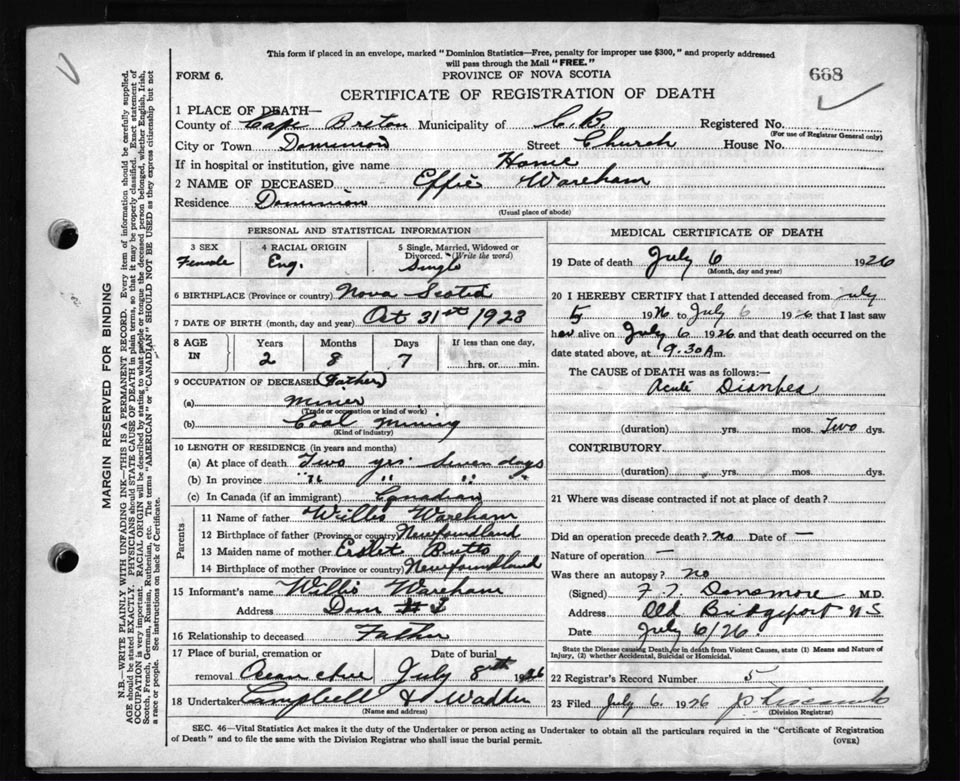 This form if placed in an envelope, marked "Dominion Statistics-Free, penalty for improper use $300," and properly addressed
will pass through the Mail "FREE."
FORM 6.
PROVINCE OF NOVA SCOTIA
668
CERTIFICATE OF REGISTRATION OF DEATH
1 PLACE OF DEATH—
County of Cape Breton Municipality of C.B. Registered No.
(For use of Registrar General only)
City or Town Dominion Street Church House No.
If in hospital or institution, give name Home
2 NAME OF DECEASED Effie Wareham
Residence Dominion
(Usual place of abode)
PERSONAL AND STATISTICAL INFORMATION
3 SEX 4 RACIAL ORIGIN 5 Single, Married, Widowed or
Divorced. (Write the word)
Female Eng. Single
6 BIRTHPLACE (Province or country) Nova Scotia
7 DATE OF BIRTH (month, day and year) Oct 31st 1923
8 AGE IN Years Months Days If less than one day,
2 8 7 hrs. or min.
9 OCCUPATION OF DECEASED (Father)
(a) Miner
(Trade or occupation or kind of work)
(b) Coal Mining
(Kind of industry)
10 LENGTH OF RESIDENCE (in years and months)
(a) At place of death Two yrs. Seven days
(b) In province " " "
(c) In Canada (if an immigrant) Canadian
Parents
11 Name of father Willis Wareham
12 Birthplace of father (Province or country) Newfoundland
13 Maiden name of mother Butts
14 Birthplace of mother (Province or country) Newfoundland
15 Informant's name Willis Wareham
Address Dom #
16 Relationship to deceased Father
17 Place of burial, cremation or Date of burial
removal July 8th 1926
18 Undertaker Campbell &
(Name and address)
MEDICAL CERTIFICATE OF DEATH
19 Date of death July 6 1926
(Month, day and year)
20 I HEREBY CERTIFY that I attended deceased from July
5 1926 to July 6 1926 that I last saw
her alive on July 6 1926 and that death occurred on the
date stated above, at 9.30 A m.
The CAUSE of DEATH was as follows:—
Acute
(duration) yrs. mos. Two dys.
CONTRIBUTORY.
(duration) yrs. mos. dys.
21 Where was disease contracted if not at place of death?
Did an operation precede death? no Date of —
Nature of operation —
Was there an autopsy? no
(Signed) Densmore M.D.
Address Old Bridgeport NS
Date July 6/26.
State the Disease causing Death, or in death from Violent Causes, state (1) Means and Nature of
Injury, (2) whether Accidental, Suicidal or Homicidal.
22 Registrar's Record Number 5
23 Filed July 6. 1926
(Division Registrar)
SEC. 46—Vital Statistics Act makes it the duty of the Undertaker or person acting as Undertaker to obtain all the particulars required in the "Certificate of Registration
of Death" and to file the same with the Division Registrar who shall issue the burial permit.
(OVER)
MARGIN RESERVED FOR BINDING
N.B.—WRITE PLAINLY WITH UNFADING INK—THIS IS A PERMANENT RECORD. Every item of information should be carefully supplied.
AGE should be stated EXACTLY. PHYSICIANS should STATE CAUSE OF DEATH in plain terms, so that it may be properly classified. Exact statement of
OCCUPATION is very important. RACIAL ORIGIN will be described by stating to what people or tongue the deceased person belonged, whether English, Irish,
Scotch, French, German, Russian, Ruthenian, etc. The terms "AMERICAN" or "CANADIAN" SHOULD NOT BE USED as they express citizenship but not
a race or people. See instructions on back of Certificate.